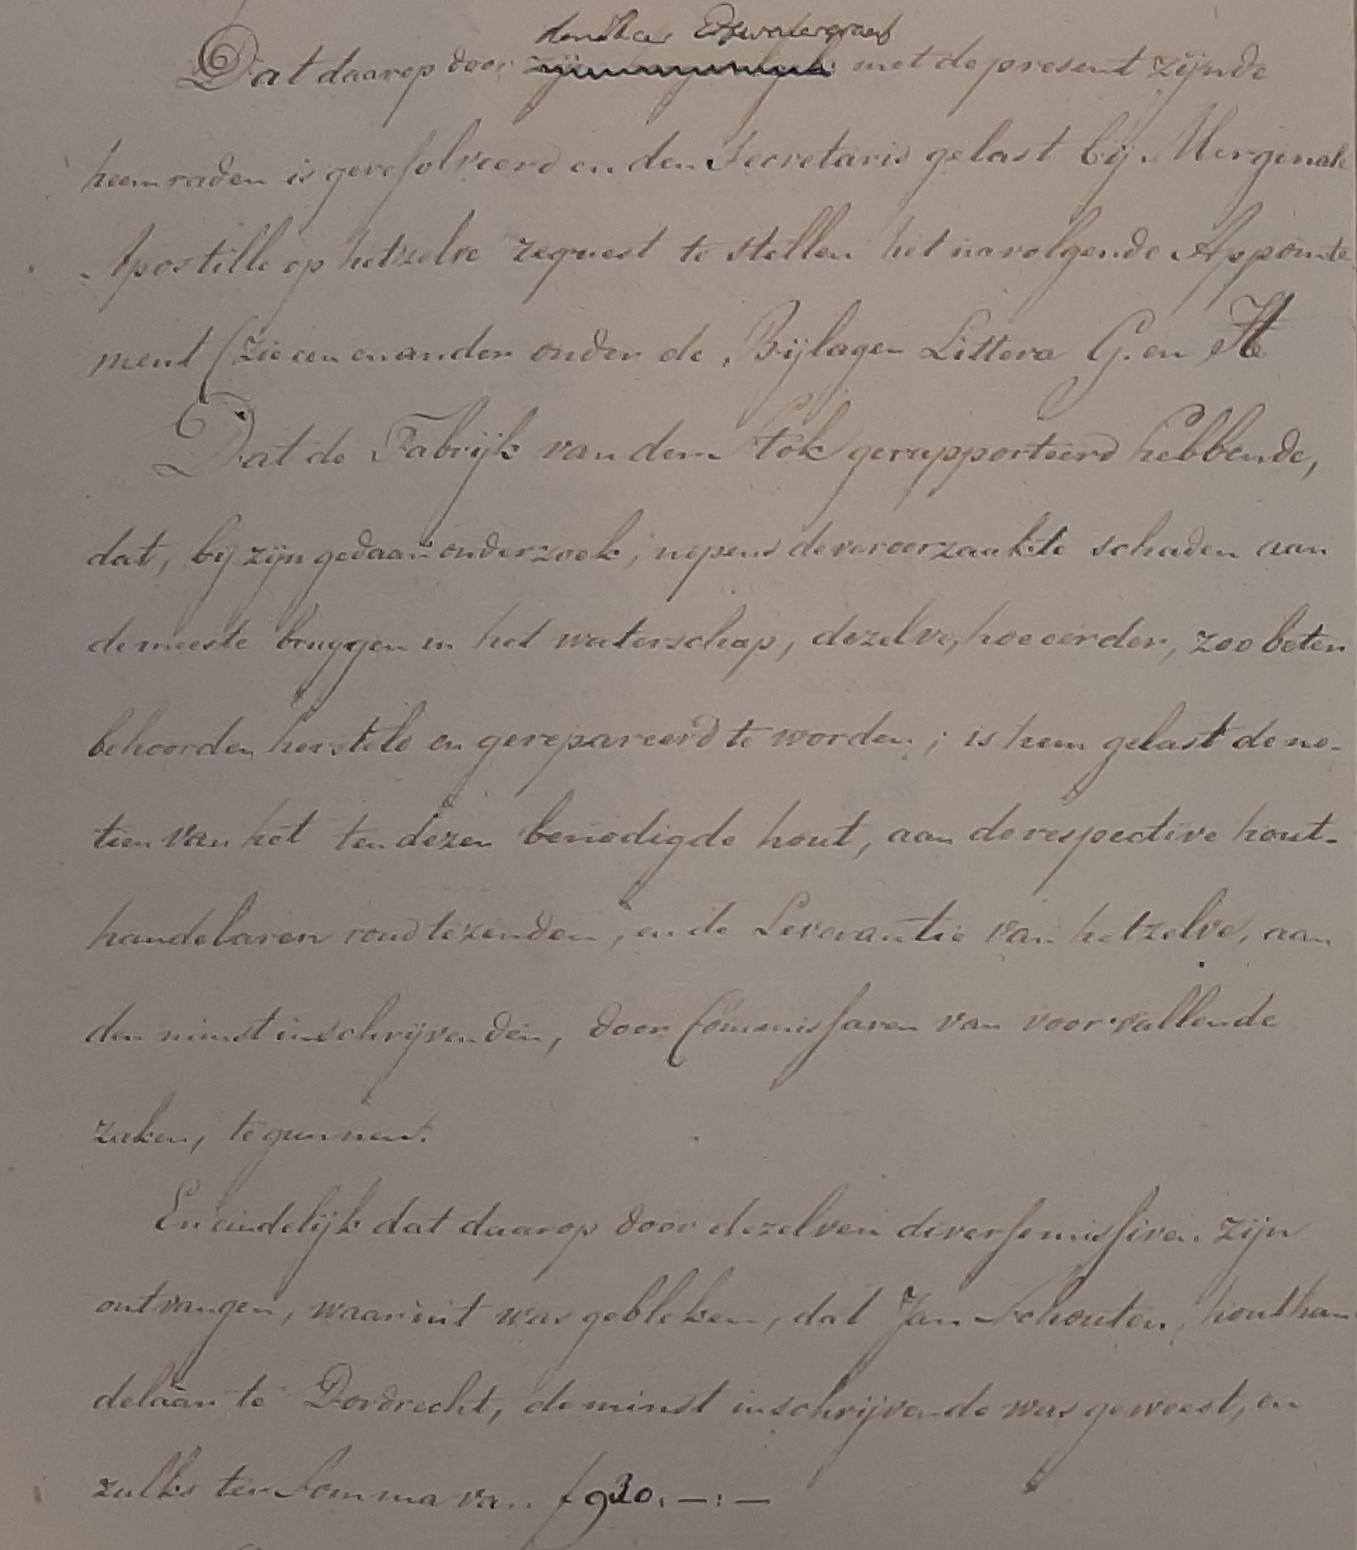 den Heer Dijkwatergraaf
Dat daarop door met de present zijnde
heemraden is geresolveerd en den Secretaris gelast bij Marginale
Apostille op hetzelve request te stellen het navolgende Appointe
ment (zie een en ander onder de Bijlagen Littera G. en H
Dat de Fabrijk van dem Stok gerapporteerd hebbende,
dat, bij zijn gedaan onderzoek, nopens de veroorzaakte schaden aan
de meeste bruggen in het waterschap, dezelve, hoe eerder, zoo beter
behoorden hersteld en gerepareerd te worden; is hem gelast de no-
tien van het ten dezen benodigde hout, aan de respective hout-
handelaren rond te zenden, en de Leverantie van hetzelve, aan
den minst inschrijvenden, door Commissaren van voorvallende
zaken, te gunnen.
En eindelijk dat daarop door dezelven diverse missiven zijn
ontvangen, waaruit was gebleken, dat Jan Schouten, houthan
delaar te Dordrecht, de minst inschrijvende was geweest, en
zulks ter Somma van f 920.—:—